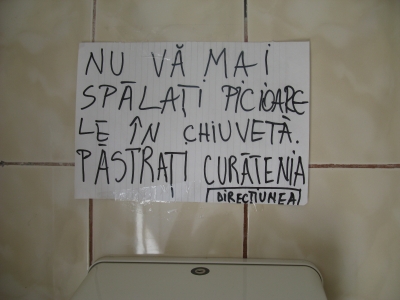 NU VĂ MAI
SPĂLAȚI PICIOARE
LE ÎN CHIUVETĂ.
PĂSTRAȚI CURĂȚENIA
DIRECȚIUNEA